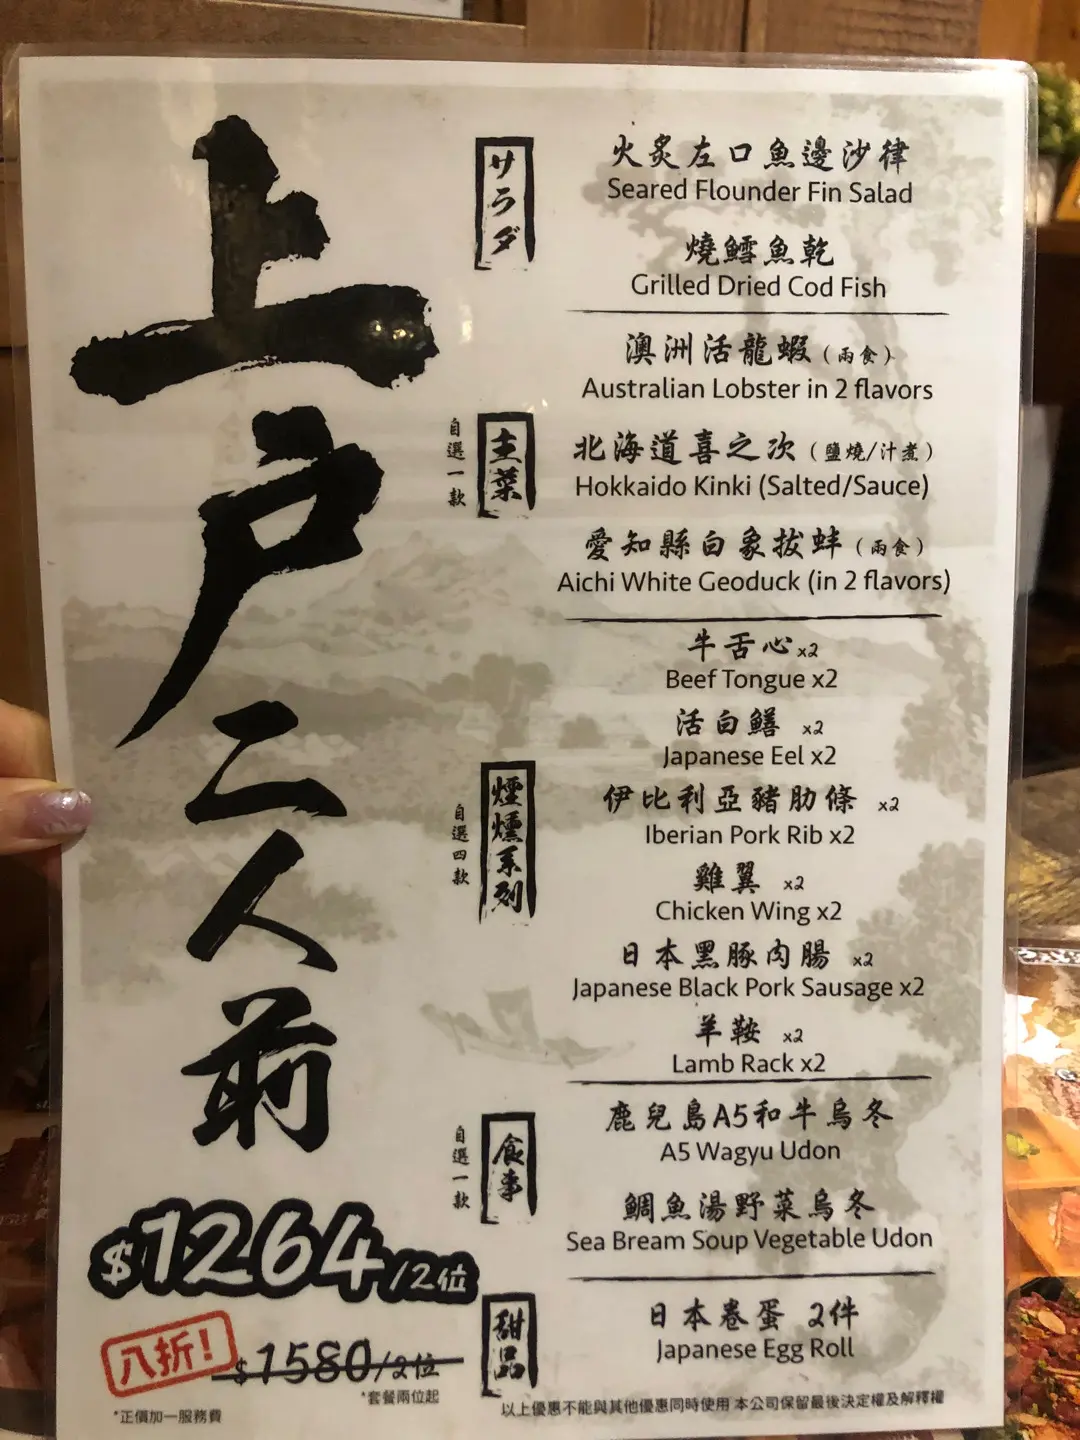 上戶二人前
サラダ
火炙左口魚邊沙律
Seared Flounder Fin Salad
燒鱈魚乾
Grilled Dried Cod Fish
自選一款
主菜
澳洲活龍蝦（兩食）
Australian Lobster in 2 flavors
北海道喜之次（鹽燒/汁煮）
Hokkaido Kinki (Salted/Sauce)
愛知縣白象拔蚌（兩食）
Aichi White Geoduck (in 2 flavors)
自選四款
煙燻系列
牛舌心 x2
Beef Tongue x2
活白鱔 x2
Japanese Eel x2
伊比利亞豬肋條 x2
Iberian Pork Rib x2
雞翼 x2
Chicken Wing x2
日本黑豚肉腸 x2
Japanese Black Pork Sausage x2
羊鞍 x2
Lamb Rack x2
自選一款
食事
鹿兒島A5和牛烏冬
A5 Wagyu Udon
鯛魚湯野菜烏冬
Sea Bream Soup Vegetable Udon
甜品
日本卷蛋 2件
Japanese Egg Roll
$1264/2位
八折！
$1580/2位
*套餐兩位起
*正價加一服務費
以上優惠不能與其他優惠同時使用 本公司保留最後決定權及解釋權